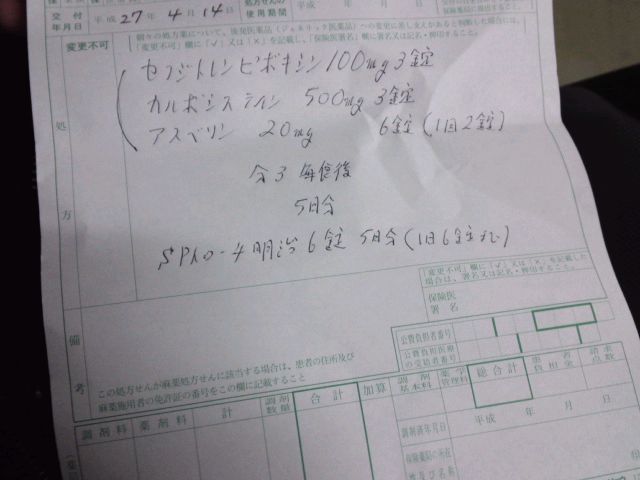 交付年月日 平成27年4月14日 処方せんの使用期間 平成 年 月 日
変更不可 個々の処方薬について、後発医薬品(ジェネリック医薬品)への変更に差し支えがあると判断した場合には、
「変更不可」欄に「✓」又は「×」を記載し、「保険医署名」欄に署名又は記名・押印すること。
処方
セフジトレンピボキシン 100mg 3錠
カルボシステイン 500mg 3錠
アスベリン 20mg 6錠(1回2錠)
分3 毎食後
5日分
SPトローチ明治 6錠 5日分(1日6錠まで)
備考
保険医署名
「変更不可」欄に「✓」又は「×」を記載した
場合は、署名又は記名・押印すること。
この処方せんが麻薬処方せんに該当する場合は、患者の住所及び
麻薬施用者の免許証の番号をこの欄に記載すること
公費負担者番号
公費負担医療の受給者番号
調剤料 薬剤料 計 調剤数量 合計 加算 調剤基本料 薬学管理料 総合計 患者負担金 請求点数
調剤済年月日 平成 年 月 日
保険薬局の所在
及び名称
印